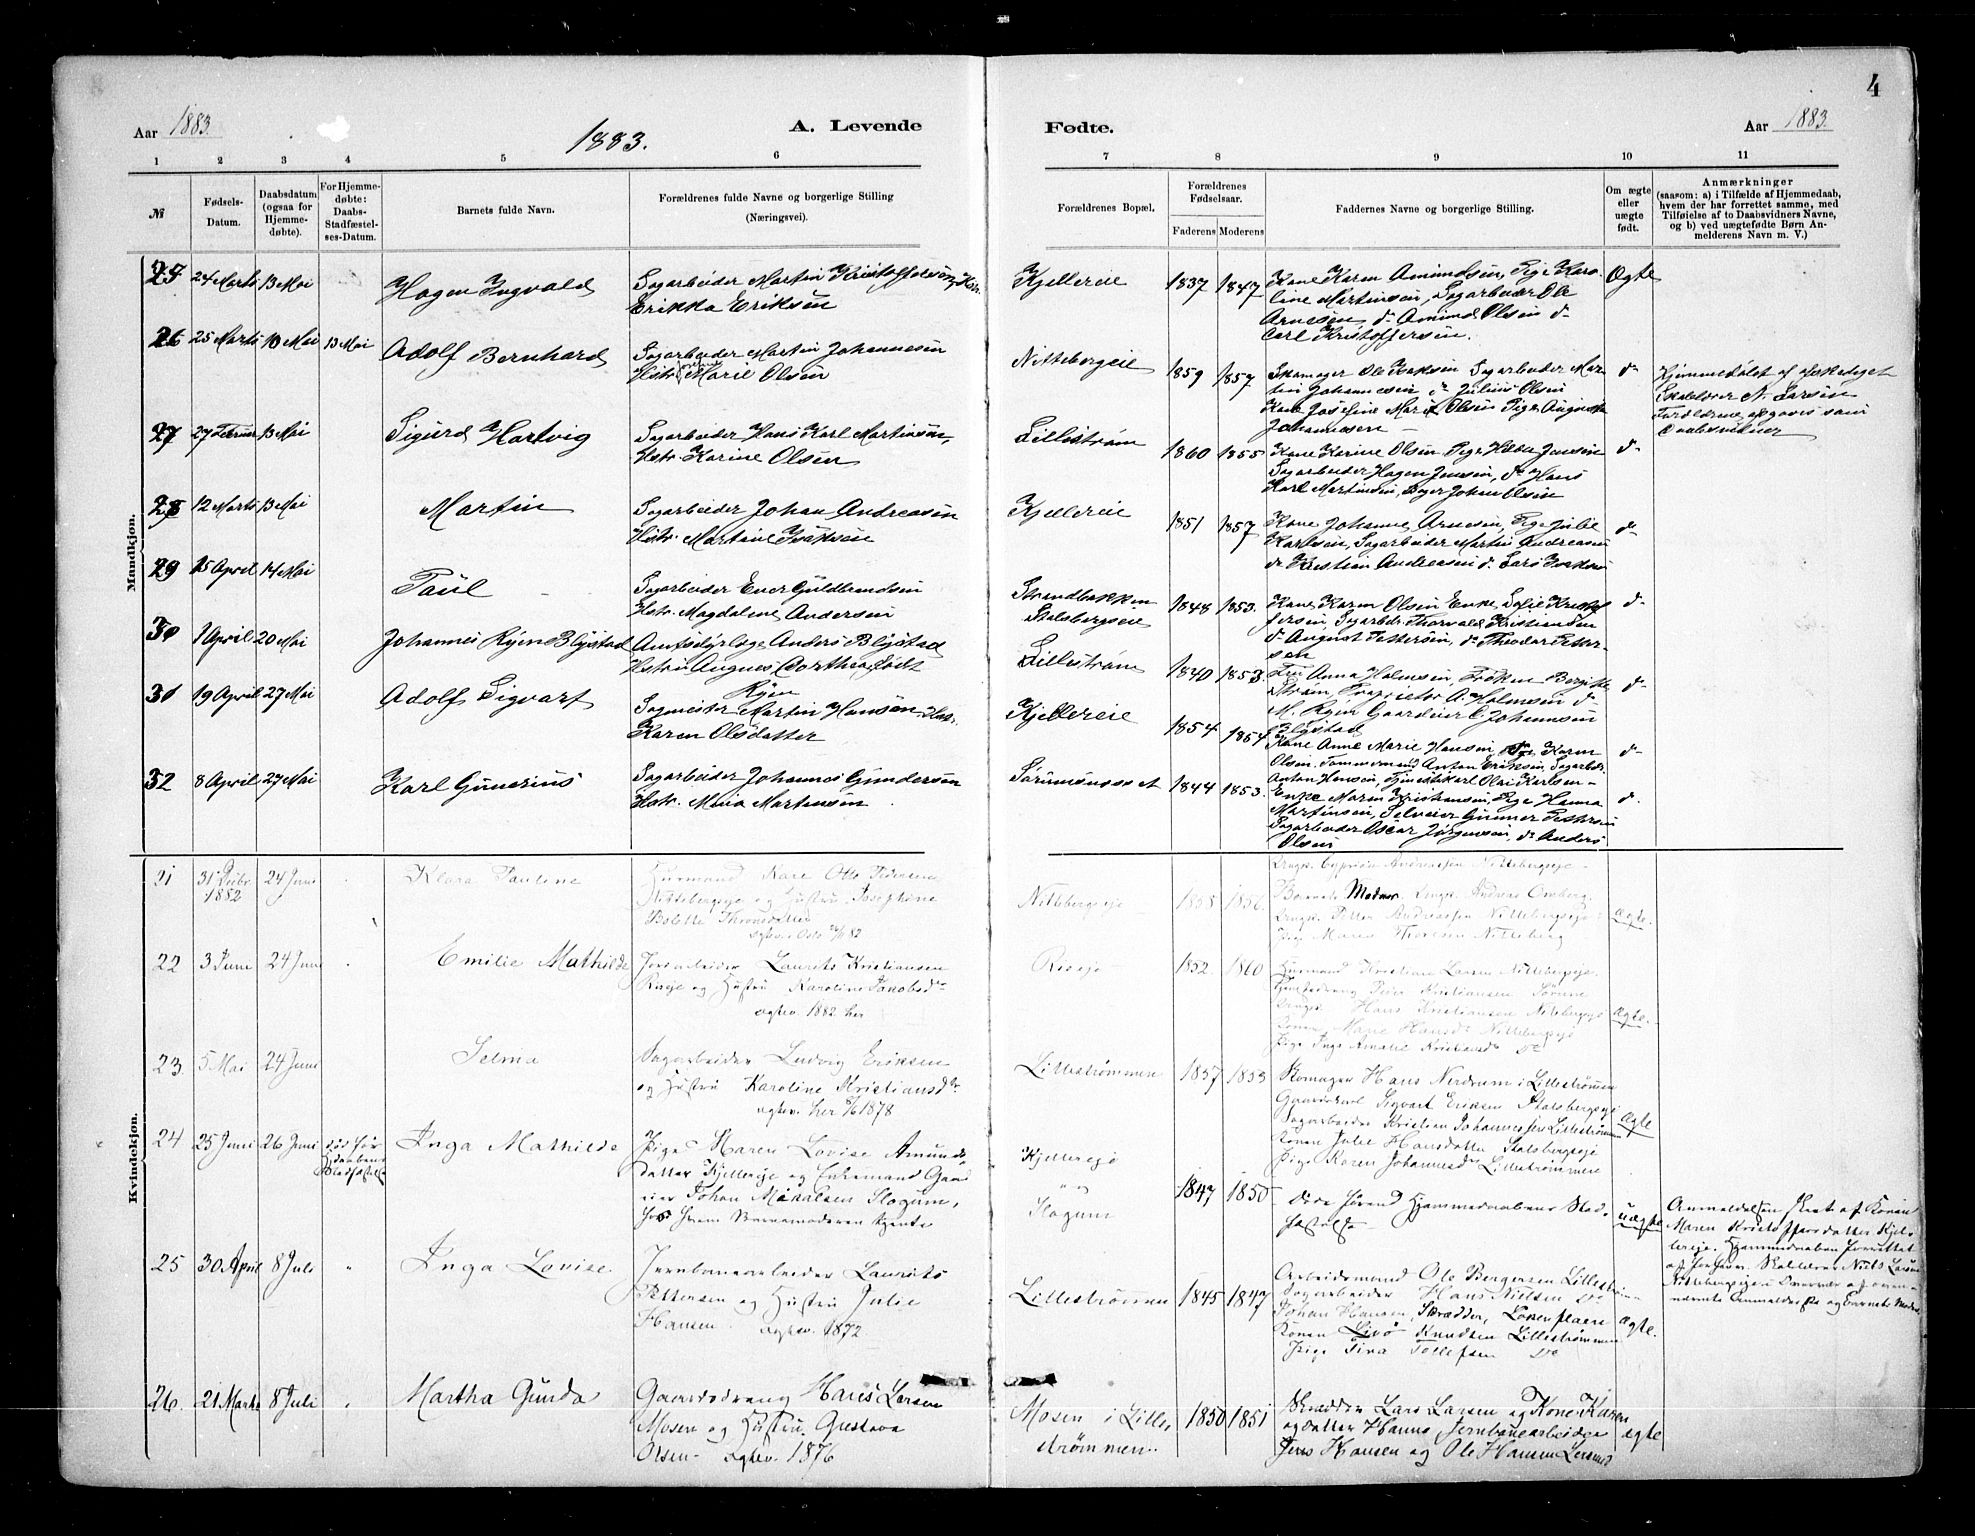 4
Aar 1883.
1883.
A. Levende
Fødte.
Aar 1883.
1 2 3 4 5 6
7 8 9 10 11
№
Fødsels-
Datum.
Daabsdatum
(ogsaa for
Hjemme-
døbte).
For Hjemme-
døbte:
Daabs-
Stadfæstel-
ses-Datum.
Barnets fulde Navn.
Forældrenes fulde Navne og borgerlige Stilling
(Næringsvei).
Forældrenes Bopæl.
Forældrenes
Fødselsaar.
Faderens Moderens
Faddernes Navne og borgerlige Stilling.
Om ægte
eller
uægte
født.
Anmærkninger
(saasom: a) i Tilfælde af Hjemmedaab,
hvem der har forrettet samme, med
Tilføielse af to Daabsvidners Navne,
og b) ved uægtefødte Børn An-
melderens Navn m. V.)
Mandkjøn.
25 24 Marts 13 Mai
Hagen Ingvald
Sagarbeider Martin Kristoffersen, Hstr.
Erikka Eriksen
Kjellereie
1837 1847
Kone Karen Amundsen, Pige Karo-
line Martinsen, Sagarbeider Ole
Arnesen, do Amund Olsen do
Carl Kristoffersen.
Ægte
26 25 Marts 10 Mai 13 Mai
Adolf Bernhard
Sagarbeider Martin Johannesen
Hstr. Marie Olsen
Nittebergeie
1859 1857
Skomager Ole Isaksen Sagarbeider Mar-
tin Johannesen do Julius Olsen
Kone Josefine Marie Olsen Pige Augusta
Johannesen
do
Hjemmedøbt af
Skolelærer N. Larsen
Forældrene opgaves som
Daabsvidner
27 27 Februar 13 Mai
Sigurd Hartvig
Sagarbeider Hans Karl Martinsen,
Hstr. Karine Olsen
Lillestrøm
1860 1855
Kone Karine Olsen, Pige Hilda Jensen
Sagarbeider Hagen Jensen, do Hans
Karl Martinsen, Johan Olsen
do
28 12 Marts 13 Mai
Martin
Sagarbeider Johan Andreasen
Hstr. Martine Isaksen
Kjellereie
1851 1857
Kone Johanne Arnesen, Pige Julie
Karlsen, Sagarbeider Martin Andreasen
do Kristian Andreasen do Lars Isaksen
do
29 15 April 14 Mai
Paul
Sagarbeider Even Guldbrandsen
Hstr. Magdalene Andersen
Strandbakken
Stalsbergeie
1848 1853.
Kone Karen Olsen Enke, Sofie Kristof-
fersen, Sagarbdr. Thorvald Kristiansen
do August Pettersen, do Theodor Petter-
sen
do
30 1 April 20 Mai
Johannes Ryen Blystad
Amtsdyrlæge Anders Blystad
Hstru Augnes Dorthea, født
Ryen
Lillestrøm
1840 1853.
Fru Anna Holmsen, Frøken Bergitte
Strøm, Proprietær A. Holmsen do
M. Ryen Gaardeier C. Johannsen
Blystad
do
31 19 April 27 Mai
Adolf Sigvart
Sagmester Martin Hansen, Hstr.
Karen Olsdatter
Kjellereie
1854 1854
Kone Anne Marie Hansen, Karen
Olsen, Tømmermand Anton Eriksen, Sagarbdr.
Anton Hansen, Tjenestekarl Olai Karlsen
do
32 8 April 27 Mai
Karl Gunerius
Sagarbeider Johannes Gundersen
Hstr. Mina Martinsen
1844 1853.
Enke Maren Kristiansen, Pige Hanna
Martinsen, Selveier Gunner Pettersen
Sagarbeider Oscar Jørgensen, do Anders
Olsen
do
Kvindekjøn.
21 31 Decbr. 1882 24 Juni
Klara Pauline
Huusmand Karl Otto Pedersen
Nittebergseje og Hustru Josephine
Bolette Thronsdatter
Nittebergseje
1858 1856.
Ungk. Andreassen Nittebergseje
Barnets Moder, Ungk. Andreas Omberg
Ungk. Petter Andreassen Nittebergseje
Pige Maren Thoresen Nitteberg
ægte.
22 3 Juni 24 Juni
Emilie Mathilde
Jernarbeider Laurits Kristiansen
Riseje og Hustru Karoline Jakobsdr.
ægtev. 1882 her
Riseje
1852. 1860
Huusmand Kristian Larsen Nittebergseje.
Peder Kristiansen
Ungk. Hans Kristiansen Nittebergseje
Konen Marie Hansdr Nittebergseje
Pige Inga Amalie Kristiansdr do
ægte.
23. 5 Mai 24 Juni
Selma
Sagarbeider Ludvig Eriksen
og Hustru Karoline Kristiansdr.
ægtev. her 1878
Lillestrømmen
1857 1853
Skomager Hans Nerdrum i Lillestrømmen
Gaardskarl Sigvart Eriksen Stalsbergseje
Sagarbeider Kristian Johannessen Lillestrømmen
Konen Julie Hansdatter Stalsbergseje
Pige Karen Johannesdr Lillestrømmen
ægte
24 25 Juni 26 Juni
død før
Stadfæstelse
Inga Mathilde
Pige Maren Lovise Amunds-
datter Kjellereje og Enkemand Gaard-
eier Johan Mikalsen Slogum,
hos hvem Barnemoderen tjente
Kjellerejo
og
Slogum
1847 1850
Døde førend Hjemmedaabens Stad-
fæstelse
uægte
Anmeldelsen skeet af Konen
Maren Kristoffersdatter Kjel-
lereje. Hjemmedaaben forrettet
af Skolelærer Niels Larsen
Nittebergseje i Nærvær af oven-
nævnte Anmelderske og Barnets Moder.
25 30 April 8 Juli
Inga Lovise.
Jernbanearbeider Laurits
Pettersen og Hustru Julie
Hansen. ægtev. 1872
Lillestrømmen
1845 1847
Arbeidsmand Ole Bergersen Lillestrøm
Sagarbeider Hans Nielsen do
Johan Hansen, Skrædder,
Konen Livø Knudsen Lillestrømmen
Pige Tina Tollefsen do
ægte.
26. 21 Marts 8 Juli
Martha Gunda
Gaardsdreng Hans Larsen
Mosen og Hustru Gustava
Olsen ægtev. 1876
Mosen i Lille-
strømmen.
1850 1851
Skrædder Lars Larsen og Kone Karen
ogdatter Hanna Jernbanearbeider
Jens Hansen og Ole Hansen
ægte